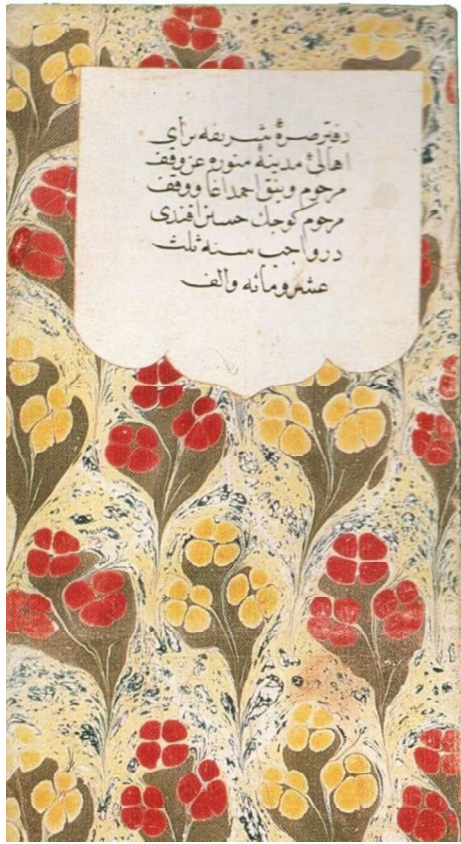 دفتر صرهٔ شریفه برای
اهالئ مدینهٔ منوره عن وقف
مرحوم احمد اغا ووقف
مرحوم کوچک حسین افندی
در واجب سنه ثلث
عشر ومائه والف